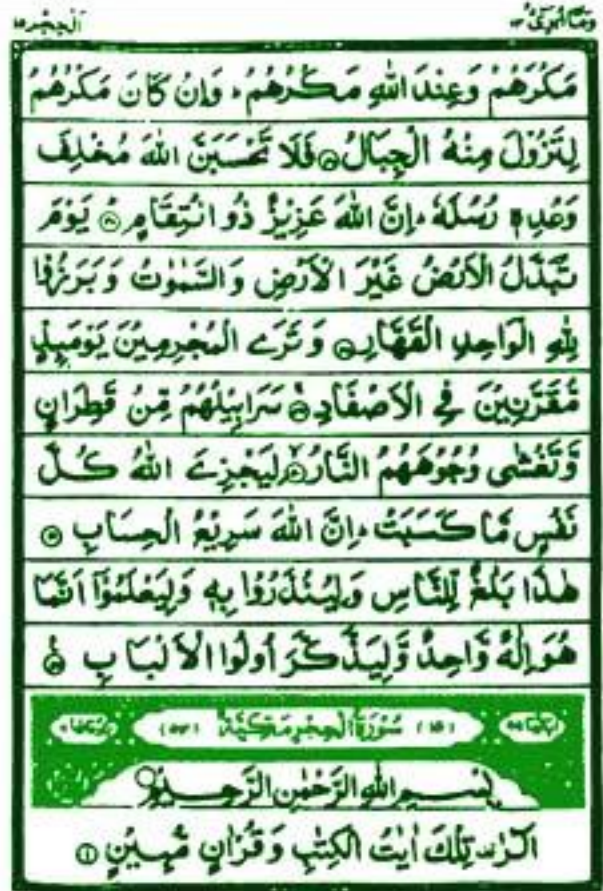 وَمَآ اُبَرِّئُ ١٣ اَلْحِجْر ١٥
مَكْرَهُمْ وَعِنْدَ اللّٰهِ مَكْرُهُمْ ؕ وَاِنْ كَانَ مَكْرُهُمْ
لِتَزُوْلَ مِنْهُ الْجِبَالُ ۝ فَلَا تَحْسَبَنَّ اللّٰهَ مُخْلِفَ
وَعْدِهٖ رُسُلَهٗ ؕ اِنَّ اللّٰهَ عَزِيْزٌ ذُو انْتِقَامٍ ۝ يَوْمَ
تُبَدَّلُ الْاَرْضُ غَيْرَ الْاَرْضِ وَالسَّمٰوٰتُ وَبَرَزُوْا
لِلّٰهِ الْوَاحِدِ الْقَهَّارِ ۝ وَتَرَى الْمُجْرِمِيْنَ يَوْمَىِٕذٍ
مُّقَرَّنِيْنَ فِى الْاَصْفَادِ ۝ سَرَابِيْلُهُمْ مِّنْ قَطِرَانٍ
وَّتَغْشٰى وُجُوْهَهُمُ النَّارُ ۝ لِيَجْزِىَ اللّٰهُ كُلَّ
نَفْسٍ مَّا كَسَبَتْ ؕ اِنَّ اللّٰهَ سَرِيْعُ الْحِسَابِ ۝
هٰذَا بَلٰغٌ لِّلنَّاسِ وَلِيُنْذَرُوْا بِهٖ وَلِيَعْلَمُوْۤا اَنَّمَا
هُوَ اِلٰهٌ وَّاحِدٌ وَّلِيَذَّكَّرَ اُولُوا الْاَلْبَابِ ۝
(١٥) سُوْرَةُ الْحِجْرِ مَكِّيَّةٌ (٥٤)
بِسْمِ اللّٰهِ الرَّحْمٰنِ الرَّحِيْمِ
الٓرٰ ۫ تِلْكَ اٰيٰتُ الْكِتٰبِ وَقُرْاٰنٍ مُّبِيْنٍ ۝١